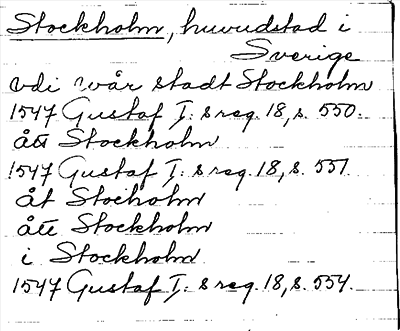 Stockholm, huvudstad i
Sverige
vdi wår stadt Stockholm
1547 Gustaf I: s reg. 18, s. 550.
ått Stockholm
1547 Gustaf I: s reg. 18, s. 551
åt Stocholm
ått Stockholm
i Stockholm
1547 Gustaf I: s reg. 18, s. 554.